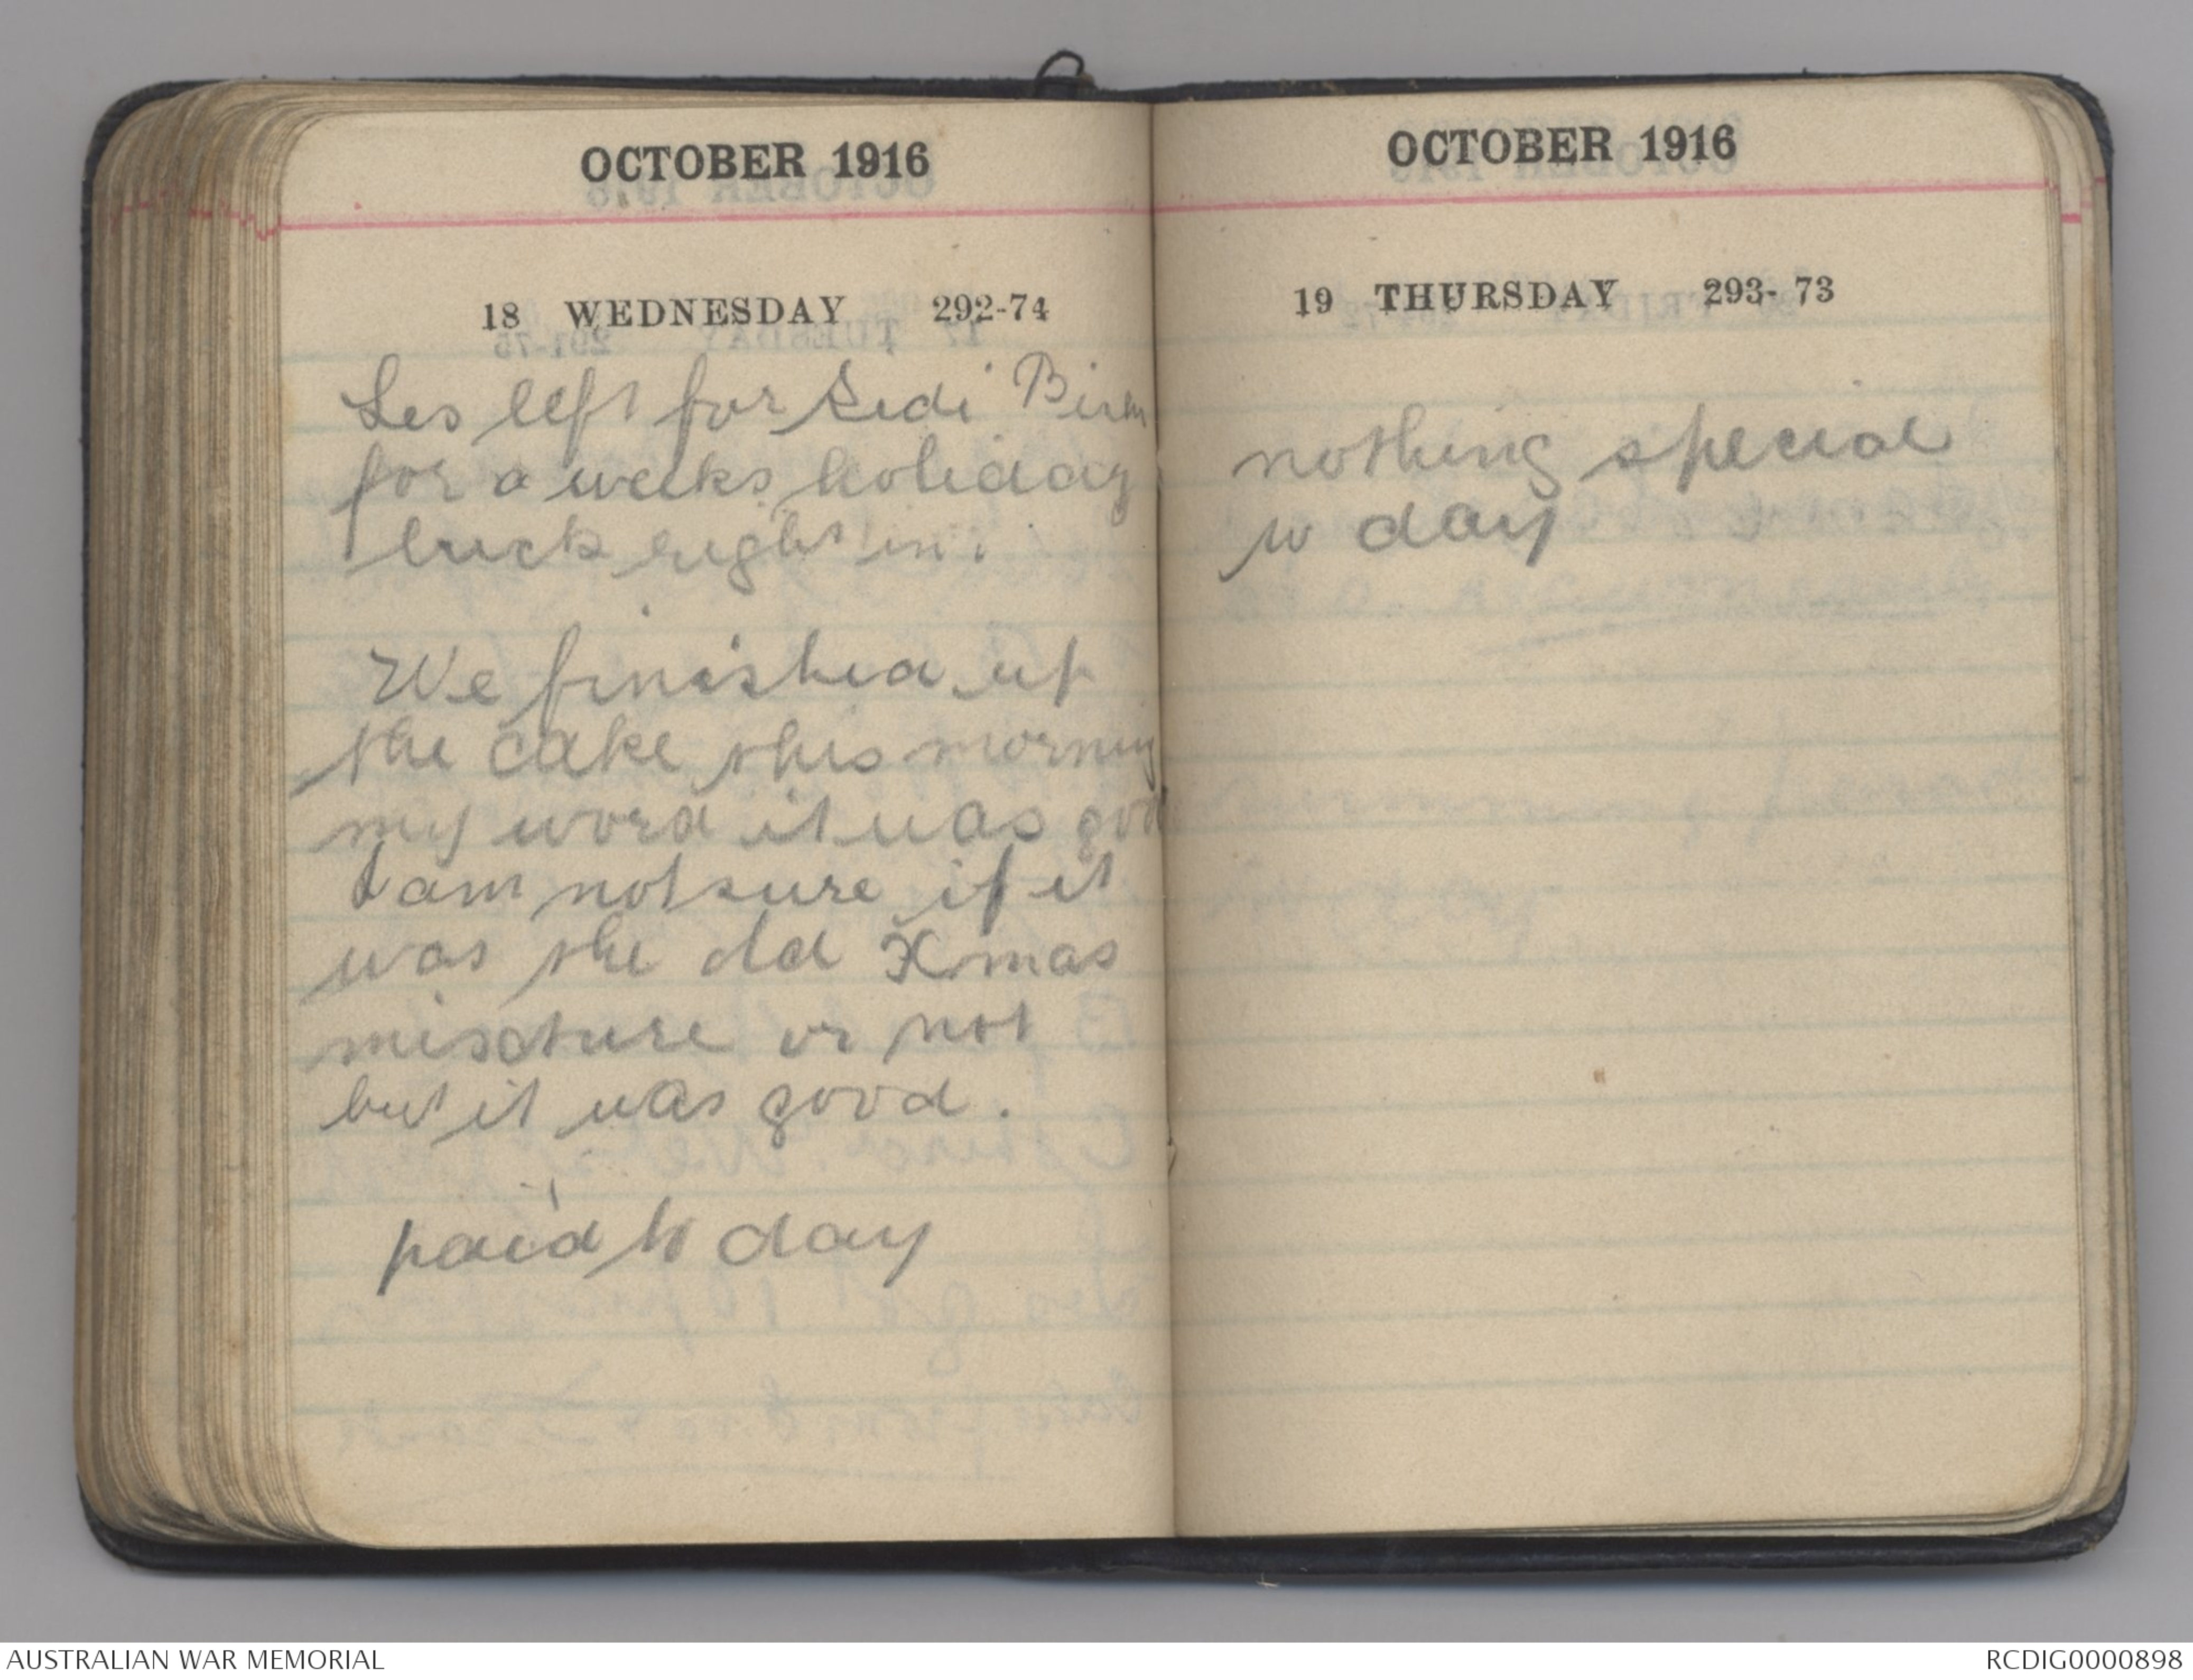 OCTOBER 1916
18 WEDNESDAY 292-74
Les left for Sidi Bish
for a weeks holiday
luck right in.
We finished up
the cake this morning
my word it was good
I am not sure if it
was the old Xmas
mixture or not
but it was good.
paid to day
OCTOBER 1916
19 THURSDAY 293-73
nothing special
to day
AUSTRALIAN WAR MEMORIAL
RCDIG0000898